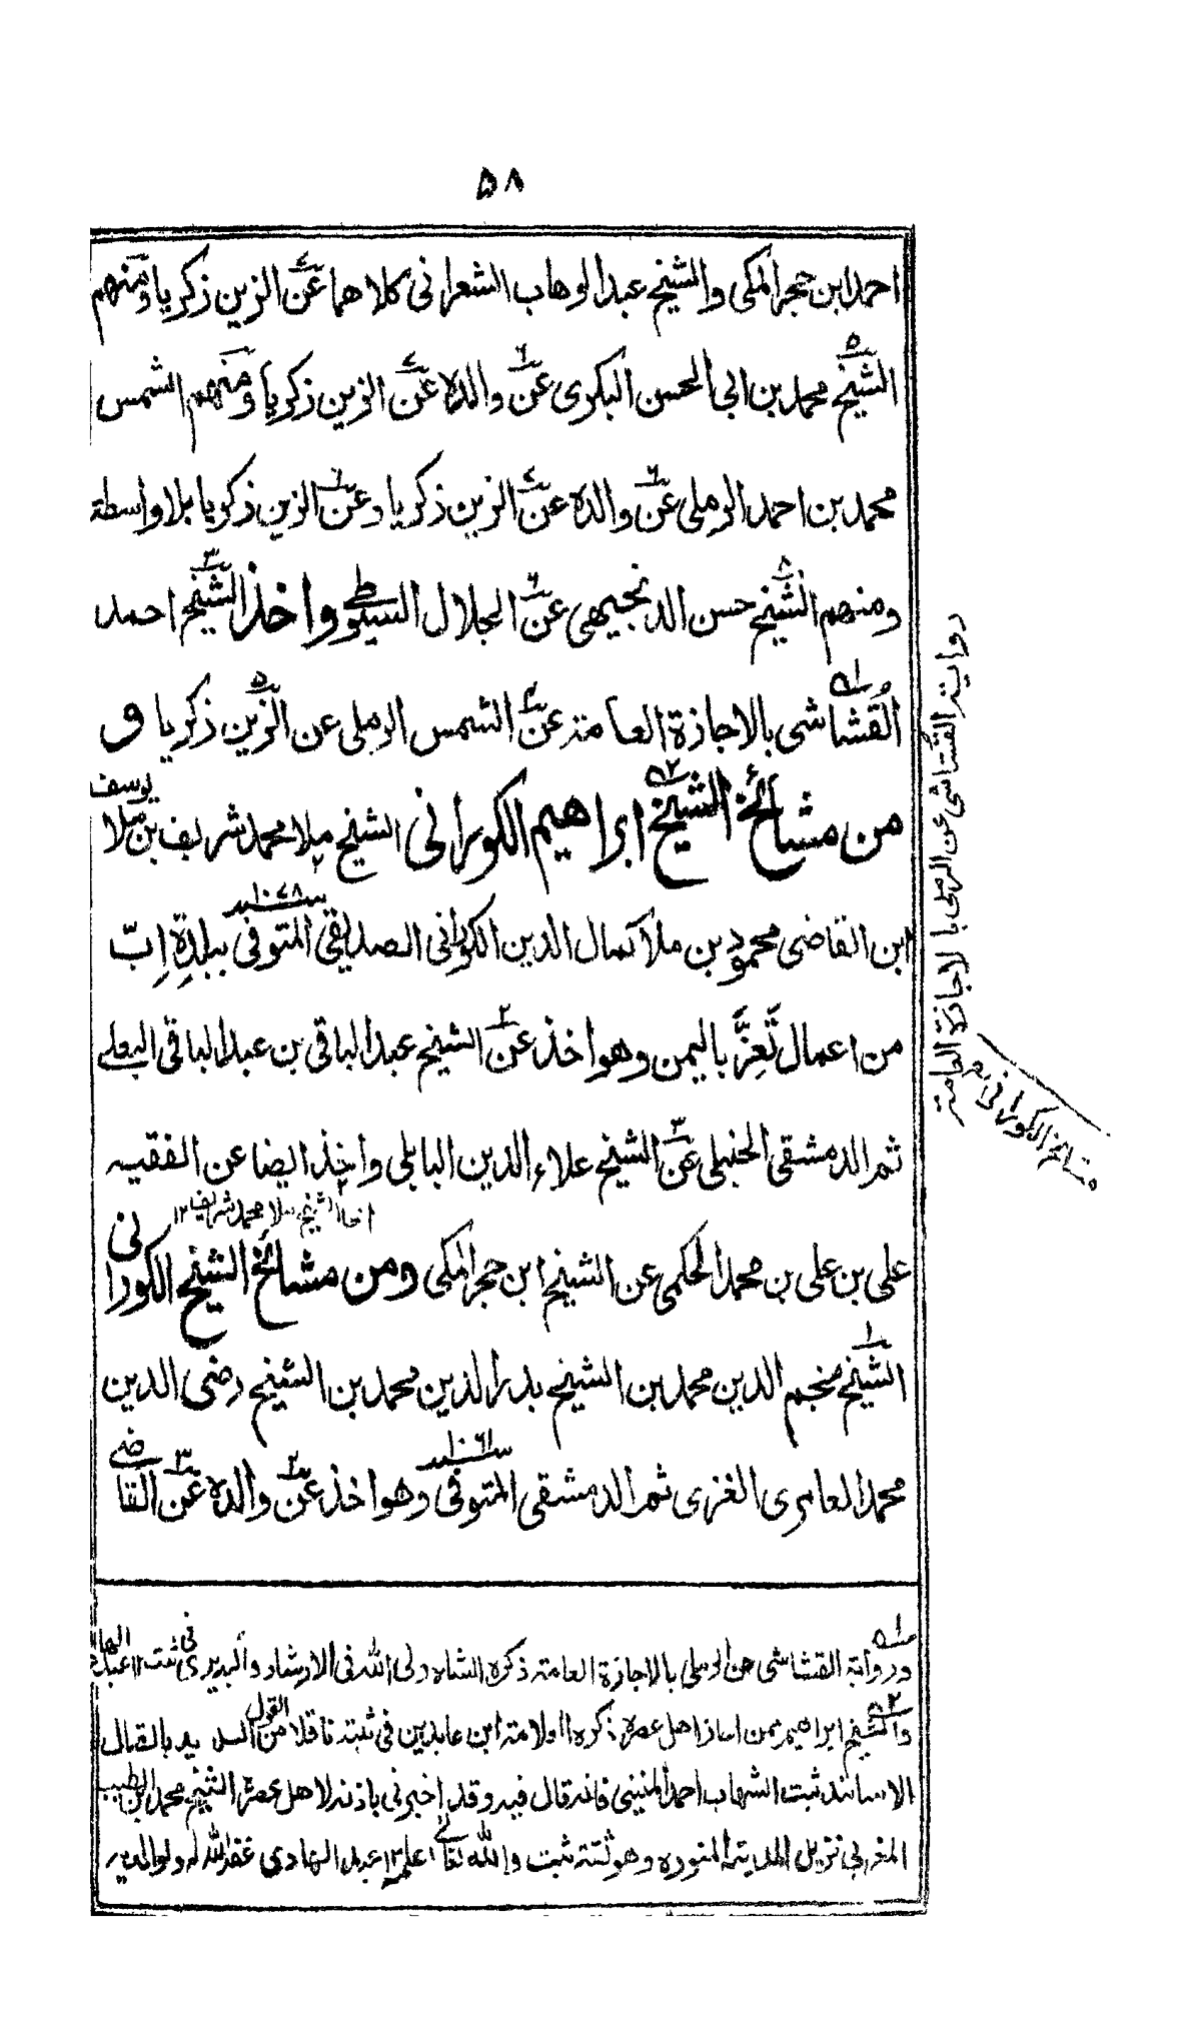 ٥٨
احمد ابن حجر المكى والشيخ عبد الوهاب الشعرانى كلاهما عن الزين زكريا ومنهم
الشيخ محمد بن ابى الحسن البكرى عن والده عن الزين زكريا ومنهم الشمس
محمد بن احمد الرملى عن والده عن الزين زكريا وعن الزين زكريا بلا واسطة
ومنهم الشيخ حسن الدنجيهى عن الجلال السيوطى واخذ الشيخ احمد
القُشاشى بالاجازة العامة عن الشمس الرملى عن الزين زكريا و
من مشائخ الشيخ ابراهيم الكورانى الشيخ ملا محمد شريف بن ملا يوسف
ابن القاضى محمود بن ملا كمال الدين الكورانى الصديقى المتوفى سنة ١٠٧٨ ببلدةِ اِبّ
من اعمال تَعِزَّ باليمن وهو اخذ عن الشيخ عبد الباقى بن عبد الباقى البعلى
ثم الدمشقى الحنبلى عن الشيخ علاء الدين البابلى واخذ ايضا عن الفقيه
اى الشيخ ملا محمد شريف ١٢
على بن على بن محمد الحكمى عن الشيخ ابن حجر المكى ومن مشائخ الشيخ الكورانى
الشيخ نجم الدين محمد بن الشيخ بدر الدين محمد بن الشيخ رضى الدين
محمد العامرى الغزى ثم الدمشقى المتوفى سنة ١٠٦١ وهو اخذ عن والده عن القاضى
رواية القشاشى عن الرملى بالاجازة العامة
مشائخ الكورانى
ورواية القشاشى عن الرملى بالاجازة العامة ذكره الشاه ولى الله فى الارشاد والبديرى فى ثبت ١٢ عبد الهادى
والشيخ ابراهيم ممن اجاز اهل عصره ذكره العلامة ابن عابدين فى ثبته ناقلا من القول السديد باتصال
الاسانيد ثبت الشهاب احمد المنينى فانه قال فيه وقد اخبرنى باذنه لاهل عصره الشيخ محمد بن الطيب
المغربى نزيل المدينة المنوره وهو ثقة ثبت والله تعالى اعلم ١٢ عبد الهادى غفر الله له ولوالديه